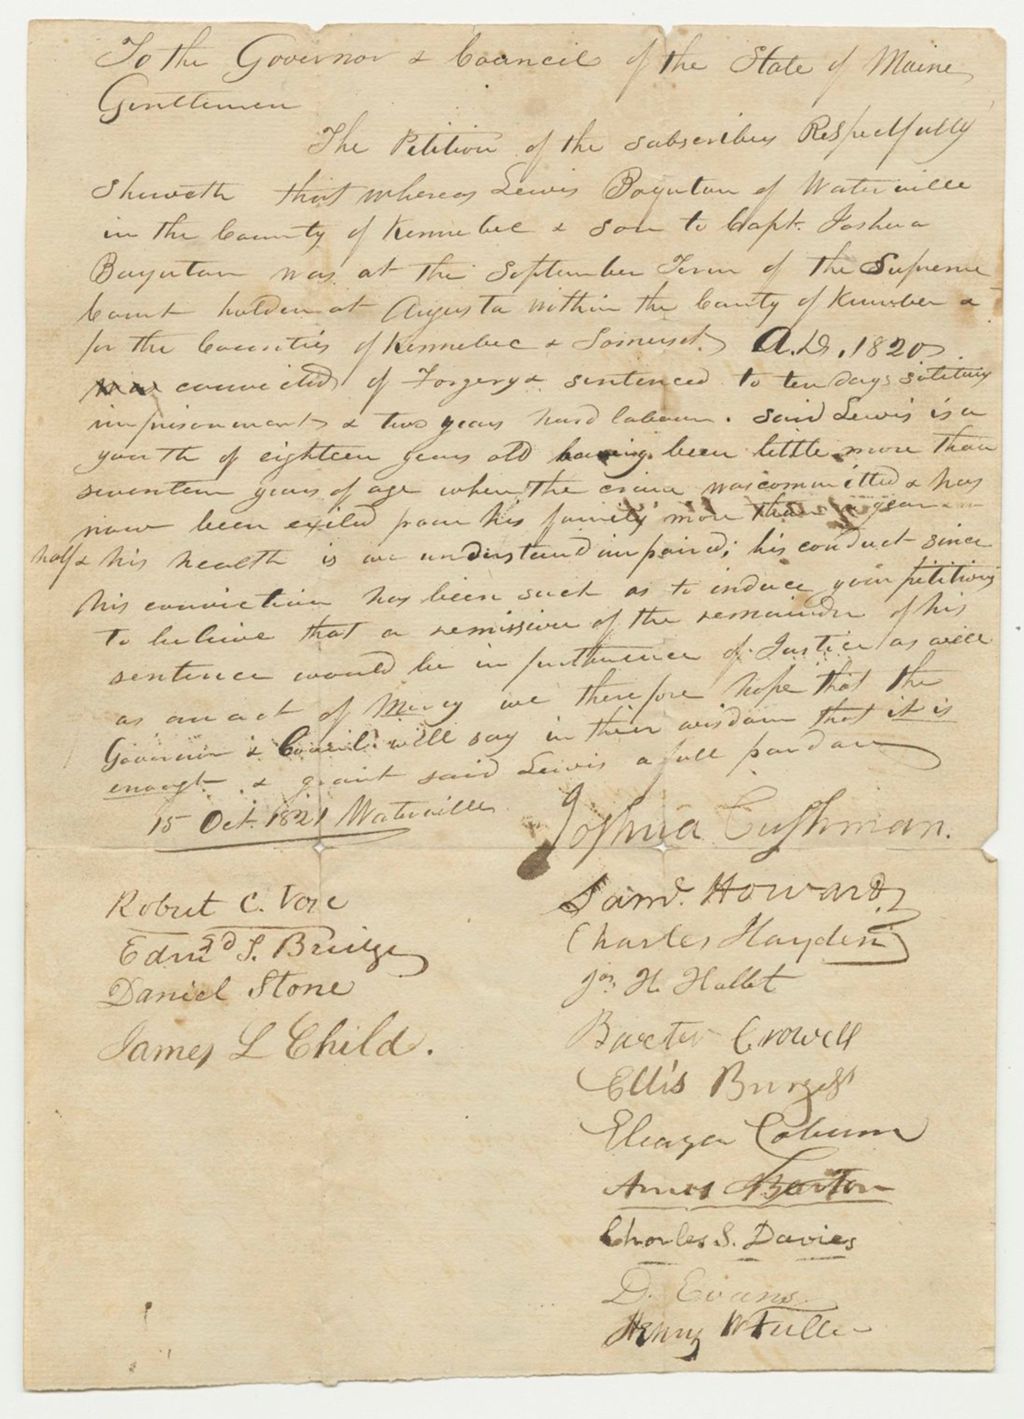 To the Governor & Council of the State of Maine
Gentlemen
The Petition of the subscribers Respectfully
Sheweth that whereas Lewis Boynton of Waterville
in the County of Kennebec & son to Capt. Joshua
Boynton was at the September Term of the Supreme
Court holden at Augusta within the County of Kennebec &
for the Counties of Kennebec & Somerset A.D. 1820
was convicted of Forgery & sentenced to ten days solitary
imprisonment & two years hard labour. Said Lewis is a
youth of eighteen years old having been little more than
seventeen years of age when the crime was committed & has
now been exiled from his family more than a year &
half & his health is we understand impaired; his conduct since
his conviction has been such as to induce your petitioners
to believe that a remission of the remainder of his
sentence would be in furtherence of Justice as well
as an act of Mercy we therefore hope that the
Governor & Council will say in their wisdom that it is
enough & grant said Lewis a full pardon
15 Oct. 1821 Waterville
Joshua Cushman.
Robert C. Vose
Edmd S. Bridge
Daniel Stone
James L Child.
Saml. Howard
Charles Hayden
Js. H. Hallet
Baxter Crowell
Ellis Burgess
Eleazer Coburn
Amos Barton
Charles S. Davies
D. Evans
Henry W Fuller